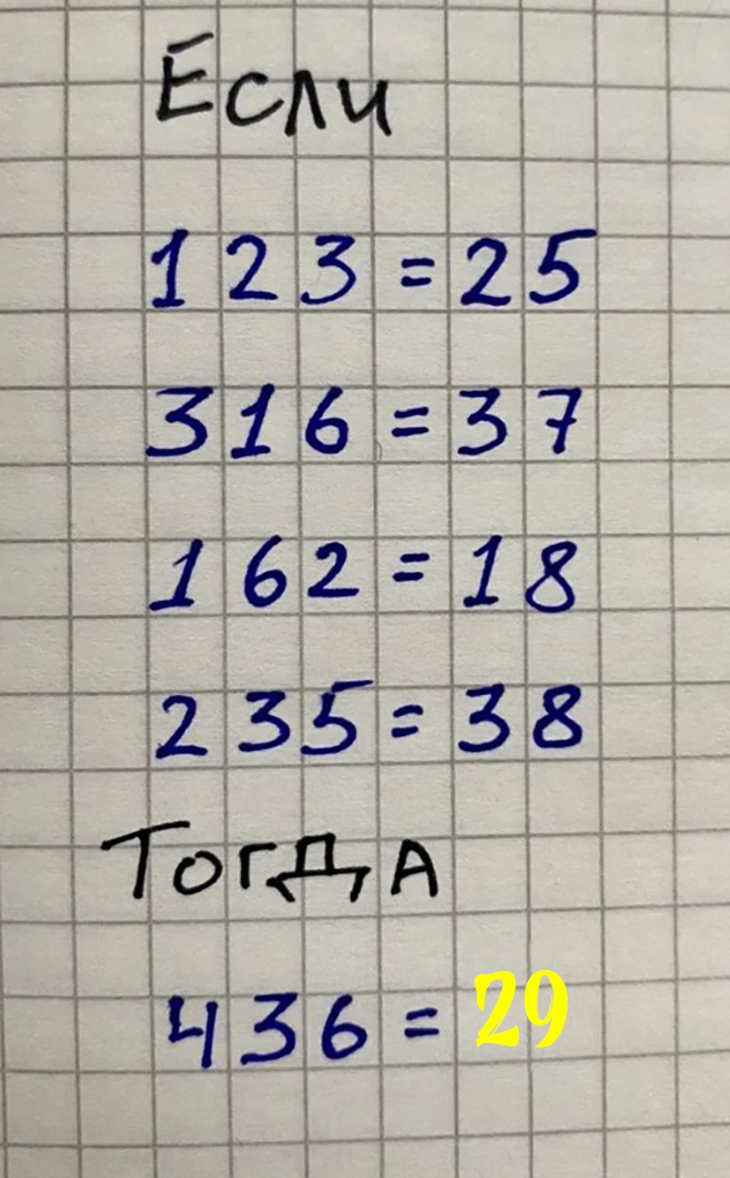 Если
123=25
316=37
162=18
235=38
Тогда
436= 29